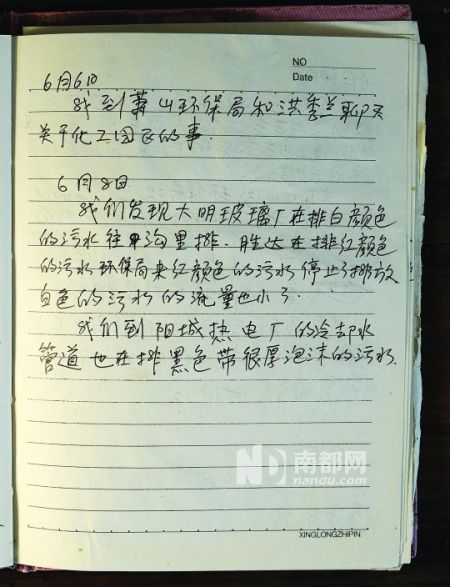 NO
Date
6月6日
我到萧山环保局和洪季兰聊天
关于化工园区的事.
6月8日
我们发现大明玻璃厂在排白颜色
的污水往中沟里排.胜达在排红颜色
的污水环保局来红颜色的污水停止了排放
白色的污水的流量也小了.
我们到阳城热电厂的冷却水
管道也在排黑色带很厚泡沫的污水.
ND 南都网
nandu.com
XINGLONGZHIPIN